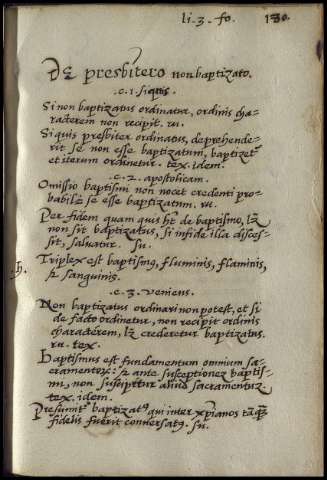 li. 3. fo. 180.
DE presbitero non baptizato.
.c. 1. Siquis.
Si non baptizatus ordinatur, ordinis cha-
racterem non recipit. ru.
Si quis presbiter ordinatus, deprehende-
rit se non esse baptizatum, baptizet
et iterum ordinetur. tex. idem.
.c. 2. apostolicam.
Omissio baptismi non nocet credenti pro-
babile se esse baptizatum. ru.
Per fidem quam quis ht de baptismo, lz
non sit baptizatus, si in fide illa disces-
sit, salvatur. su.
.h. Triplex est baptismq, fluminis, flaminis,
& sanguinis.
.c. 3. veniens.
Non baptizatus ordinari non potest, et si
de facto ordinetur, non recipit ordinis
characterem, lz crederetur baptizatus.
ru. tex.
baptismus est fundamentum omnium sa-
cramentorz: & ante susceptionez baptis-
mi, non suscipitur aliud sacramentuz.
tex. idem.
Presumit baptizatq qui inter xpianos tanq
fidelis fuerit conversatq. su.